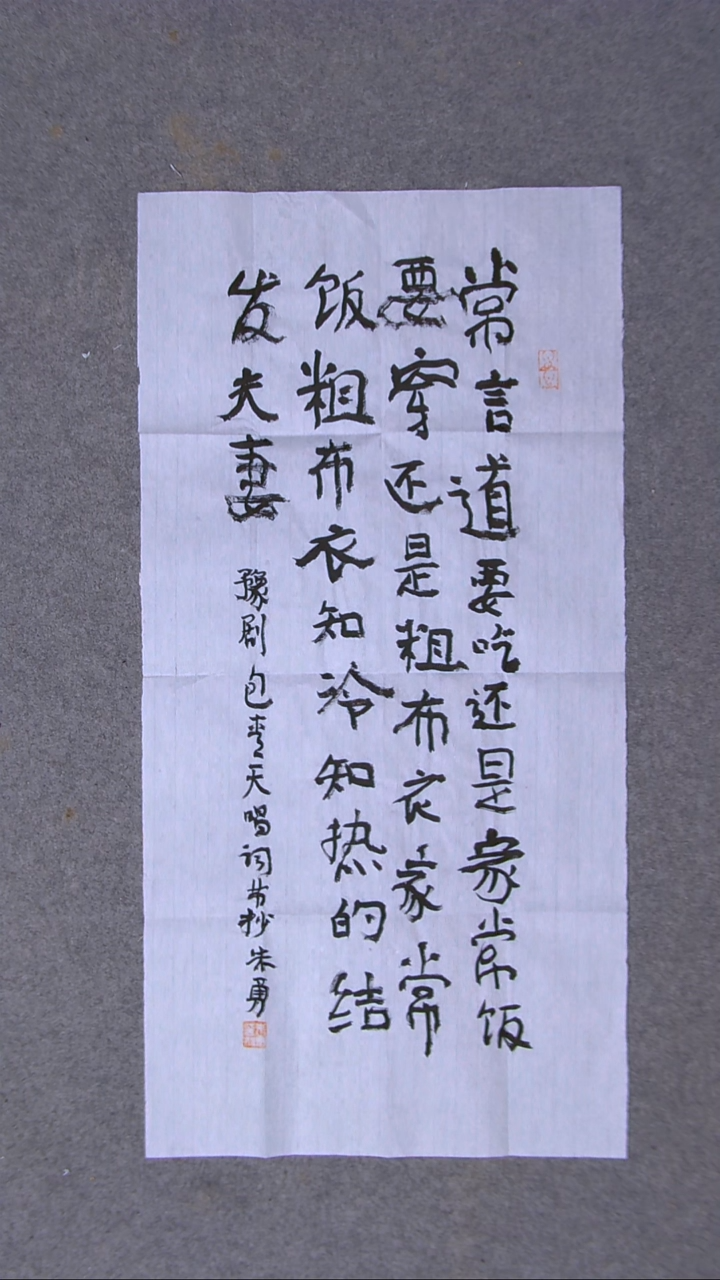 常言道要吃还是家常饭
要穿还是粗布衣家常
饭粗布衣知冷知热的结
发夫妻
豫剧包青天唱词节抄朱勇